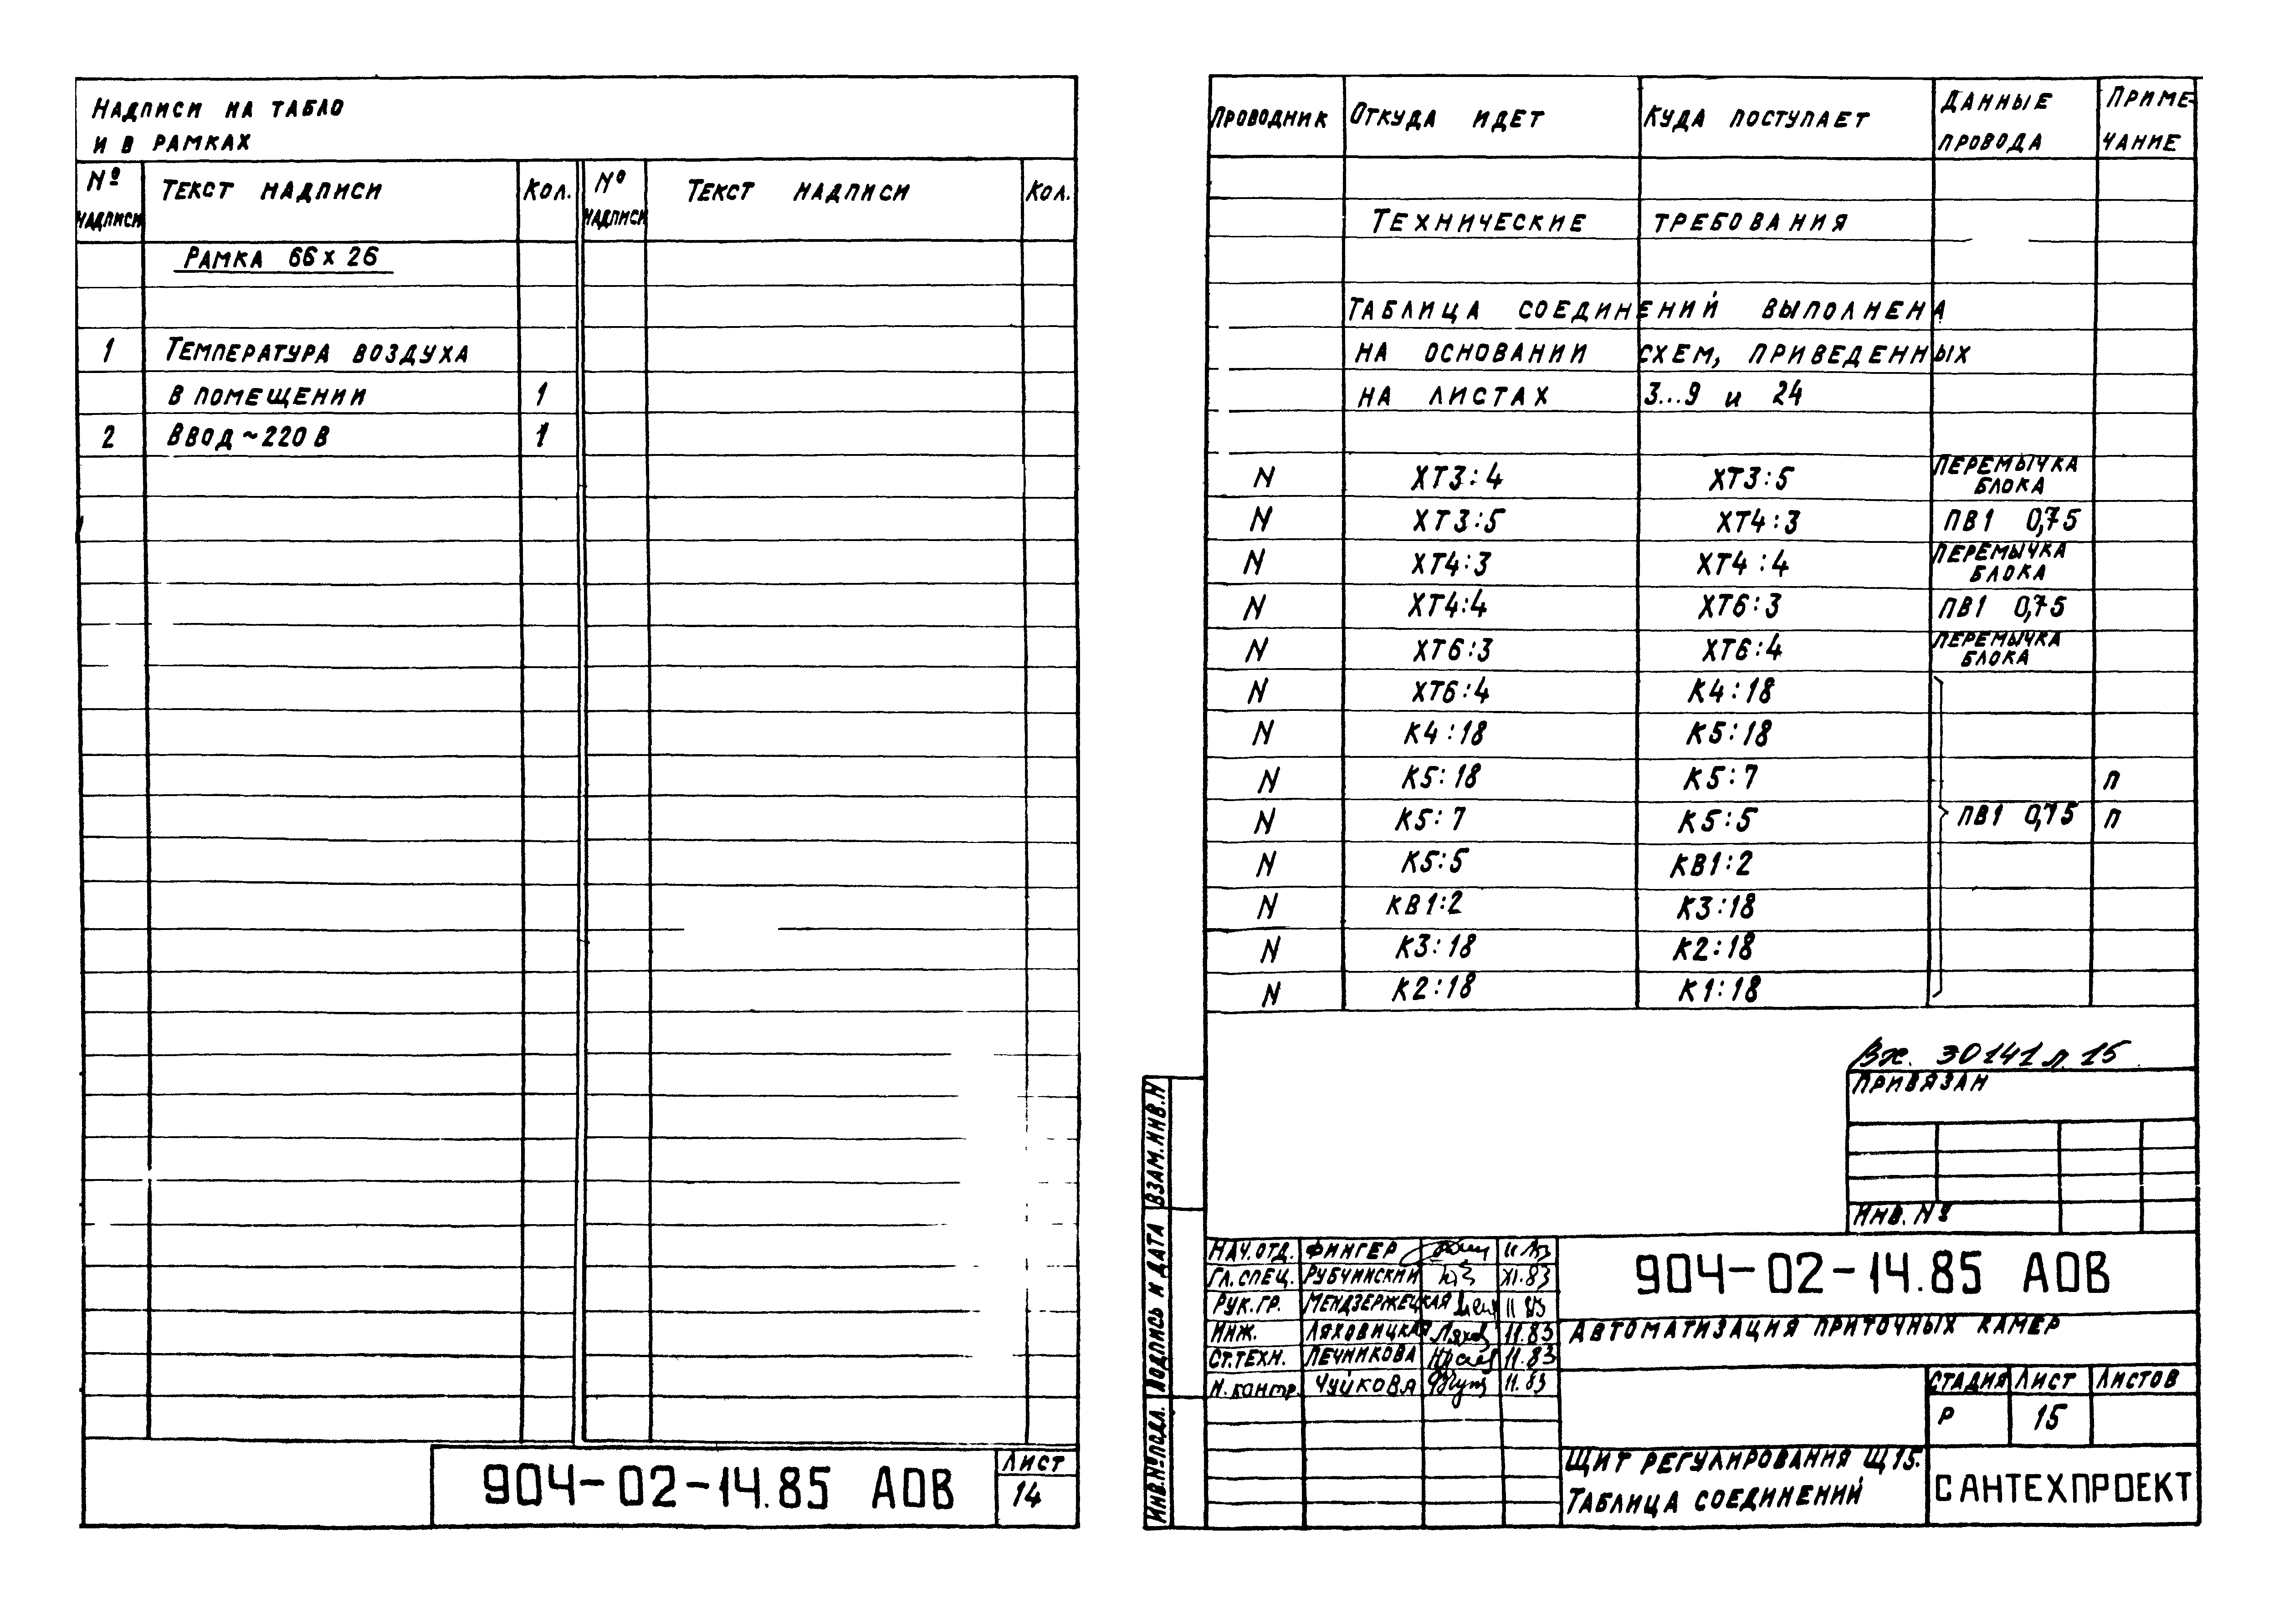 Надписи на табло
и в рамках
№ надписи Текст надписи Кол. № надписи Текст надписи Кол.
Рамка 66 х 26
1 Температура воздуха
в помещении 1
2 Ввод ~ 220 В 1
904-02-14.85 АОВ
Лист
14
Проводник Откуда идет Куда поступает Данные провода Приме-чание
Технические требования
Таблица соединений выполнена
на основании схем, приведенных
на листах 3...9 и 24
N ХТ3:4 ХТ3:5 Перемычка блока
N ХТ3:5 ХТ4:3 ПВ1 0,75
N ХТ4:3 ХТ4:4 Перемычка блока
N ХТ4:4 ХТ6:3 ПВ1 0,75
N ХТ6:3 ХТ6:4 Перемычка блока
N ХТ6:4 К4:18
N К4:18 К5:18
N К5:18 К5:7 п
N К5:7 К5:5 ПВ1 0,75 п
N К5:5 КВ1:2
N КВ1:2 К3:18
N К3:18 К2:18
N К2:18 К1:18
Вх. 30141 л. 15
Привязан
Инв. №
Взам. инв. N
Подпись и дата
Инв. № подл.
Нач. отд. Фингер
Гл. спец. Рубчинский XI.83
Рук. гр. Мендзержецкая 11 83
Инж. Ляховицкая 11.83
Ст. техн. Печникова 11.83
Н. контр. Чуйкова 11.83
904-02-14.85 АОВ
Автоматизация приточных камер
Стадия Лист Листов
Р 15
Щит регулирования Щ15.
Таблица соединений
САНТЕХПРОЕКТ